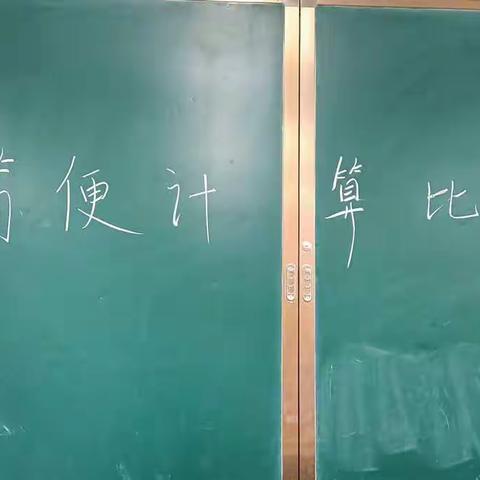 简便计算比